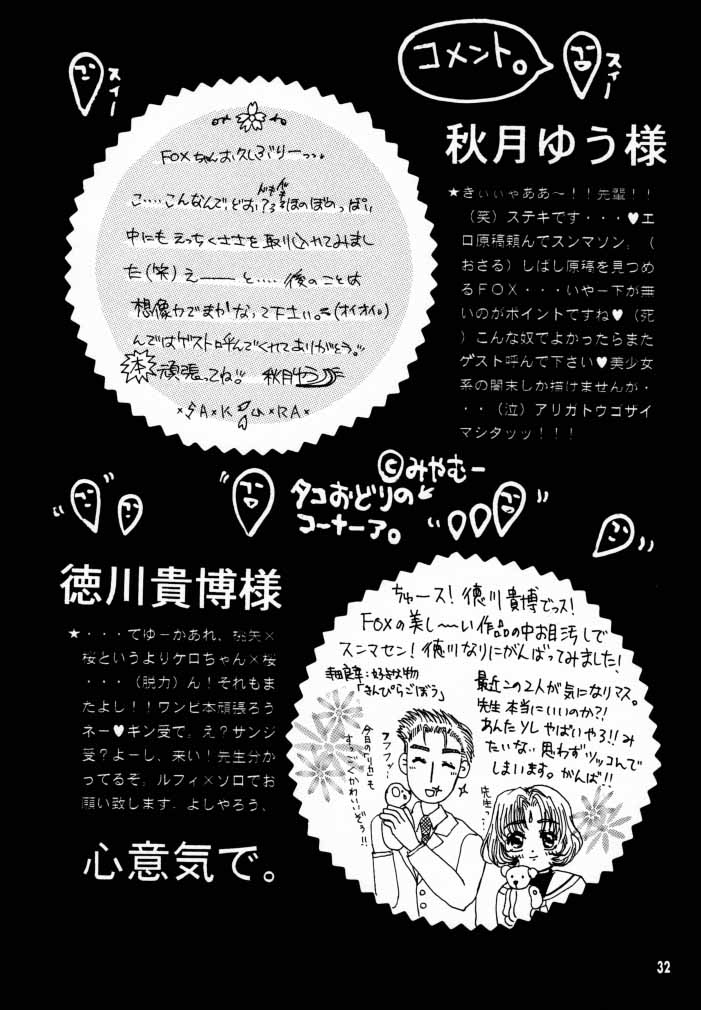 コメント。
スィー
スィー
秋月ゆう様
★きぃぃゃああ～！！先輩！！
（笑）ステキです・・・♥エ
ロ原稿頼んでスンマソン。（
おさる）しばし原稿を見つめ
るＦＯＸ・・・いやー下が無
いのがポイントですね♥（死
）こんな奴でよかったらまた
ゲスト呼んで下さい♥美少女
系の闇末しか描けませんが・
・・（泣）アリガトウゴザイ
マシタッッ！！！
FOXちゃんお久しぶりーっっ
こ‥‥こんなんでどお？ ほのぼのめっぱい
中にもえっちくささを取り入れてみまし
た（笑）えーーと‥‥後のことは
想像力でまかなって下さい。（オイオイ。）
んではゲストに呼んでくれてありがとう。
本 頑張ってね!! 秋月ゆう
×SA×K U×RA×
©みやむー
タコおどりの
コーナーア。
徳川貴博様
★・・・てゆーかあれ、桃矢×
桜というよりケロちゃん×桜
・・・（脱力）ん！それもま
たよし！！ワンピ本頑張ろう
ネー♥キン受で。え？サンジ
受？よーし、来い！先生分か
ってるぞ。ルフィ×ゾロでお
願い致します。よしやろう、
心意気で。
ちゅース！徳川貴博でっス！
FOXの美し〜い作品の中お目汚しで
スンマセン！徳川なりにがんばってみました！
寺田良幸：好きな物
「きんぴらごぼう」
最近この2人が気になりマス。
先生本当にいいのか?!
あんたソレやばいやろ!!み
たいな。思わずツッコんで
しまいます。がんば!!
フフフッ…
今日の「リカ」も
すっごくかわいいぞぅ!!
先生っ…
32